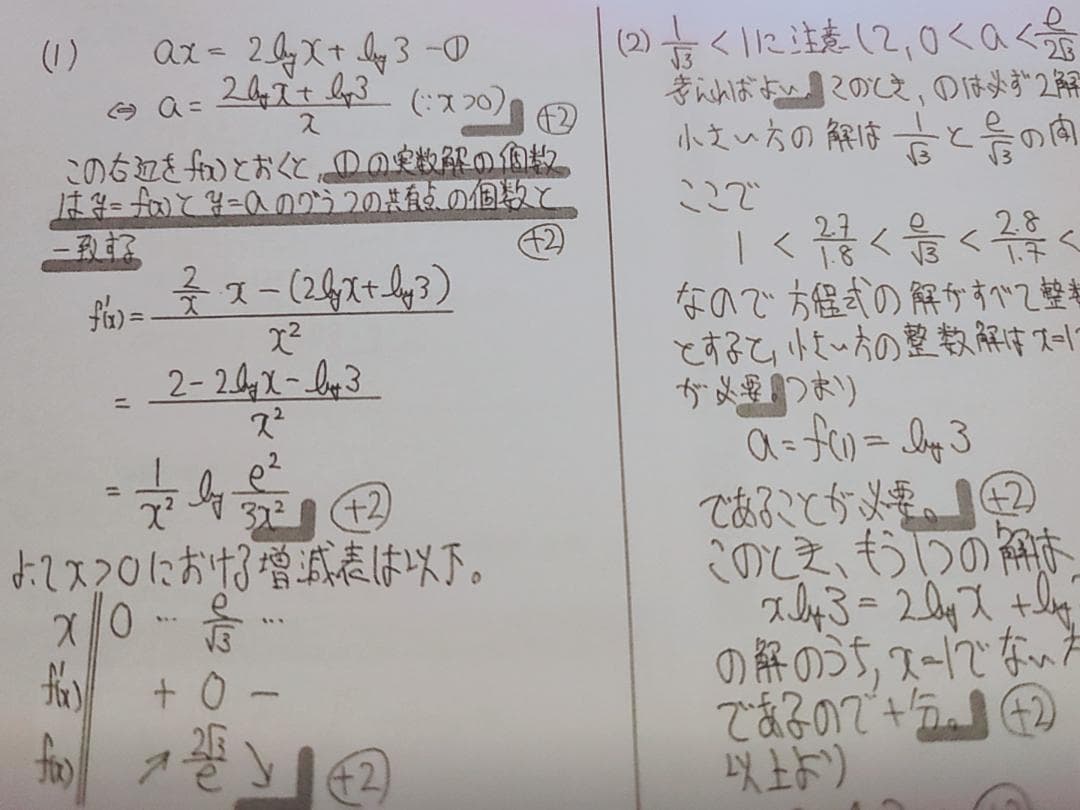 (1) ax = 2log x + log 3 －①
⇔ a = (2log x + log 3)/x (∵x>0) +2
この右辺をf(x)とおくと、①の実数解の個数
はy=f(x)とy=aのグラフの共有点の個数と
一致する +2
f'(x) = (2/x · x − (2log x + log 3))/x²
= (2 − 2log x − log 3)/x²
= 1/x² log e²/3x² +2
よってx>0における増減表は以下。
x 0 … e/√3 …
f'(x) + 0 −
f(x) ↗ 2√3/e ↘ +2
(2) 1/√3 < 1に注意して, 0 < a < e/2√3
考えればよい このとき, ①は必ず2解
小さい方の解は 1/√3 と e/√3 の間
ここで
1 < 2.7/1.8 < e/√3 < 2.8/1.7 <
なので方程式の解がすべて整数
とすると, 小さい方の整数解はx=1
が必要。つまり
a = f(1) = log 3
であることが必要。 +2
このとき、もう1つの解は
x log 3 = 2log x + log
の解のうち, x=1でない方
であるので十分。 +2
以上より